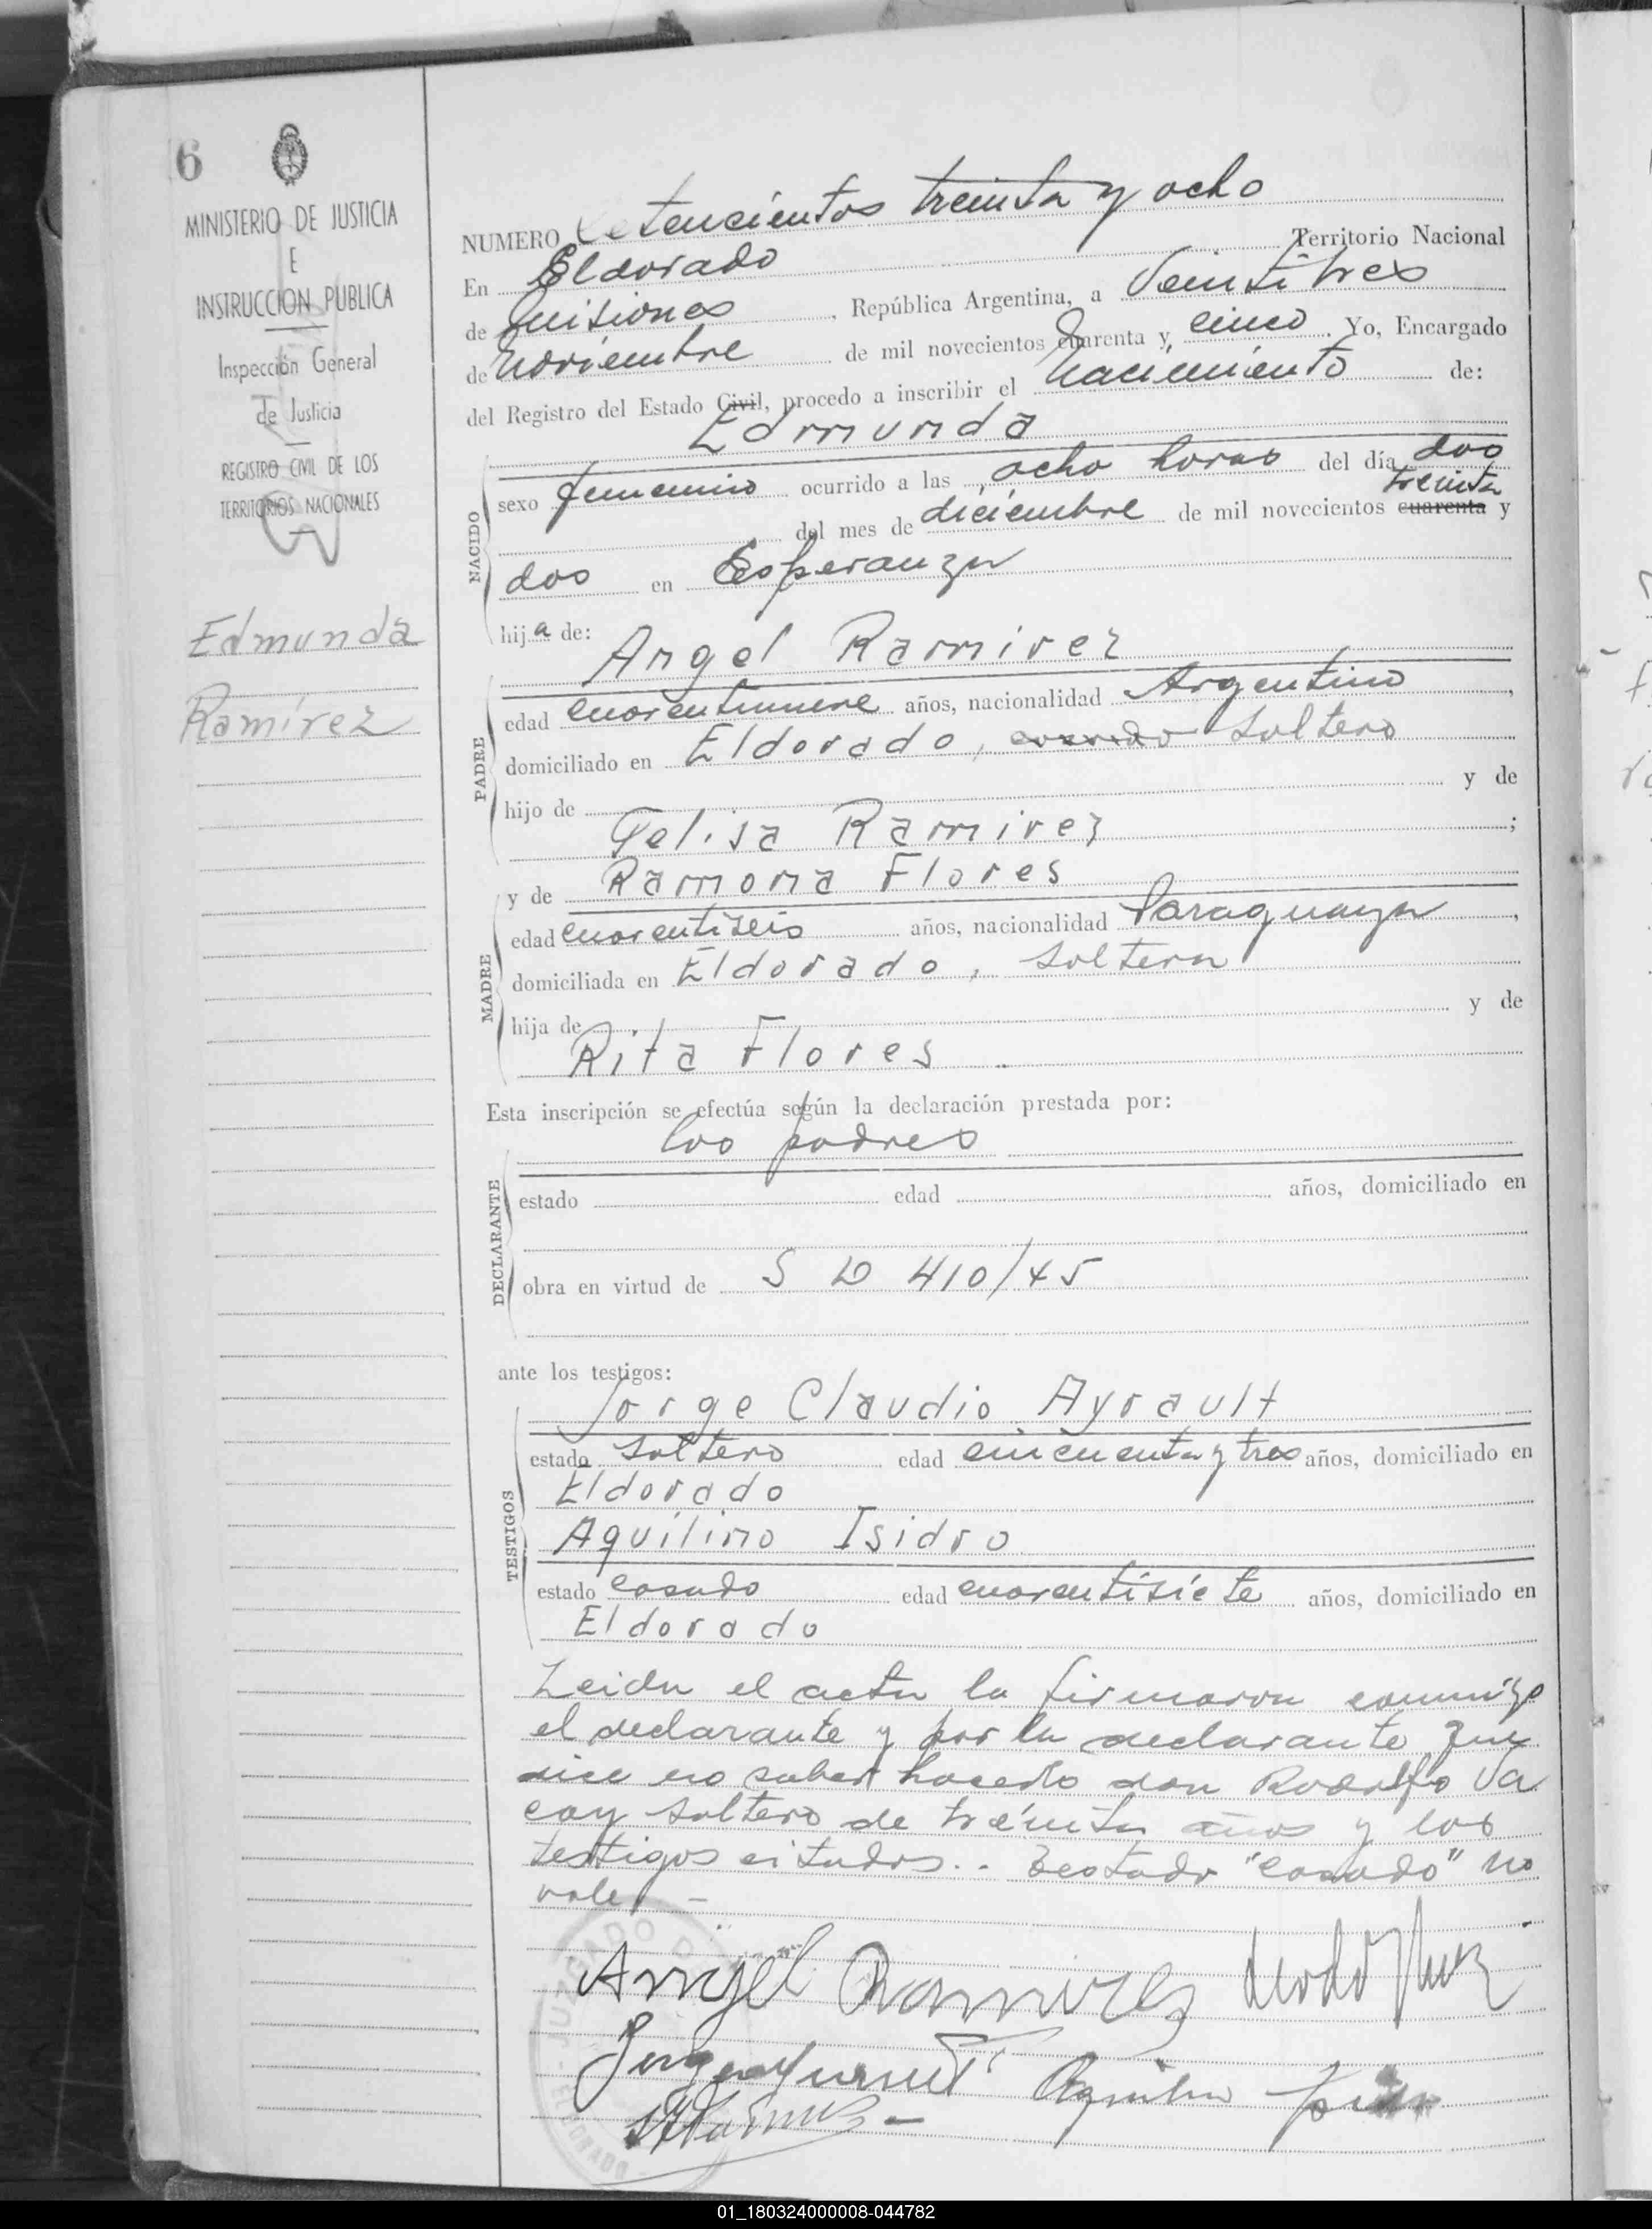 6
MINISTERIO DE JUSTICIA
E
INSTRUCCION PUBLICA
Inspección General
de Justicia
REGISTRO CIVIL DE LOS
TERRITORIOS NACIONALES
Edmunda
Ramírez
NUMERO Setencientos treinta y ocho
En Eldorado Territorio Nacional
de Misiones, República Argentina, a Veintitres
de Noviembre de mil novecientos cuarenta y cinco. Yo, Encargado
del Registro del Estado Civil, procedo a inscribir el Nacimiento de:
Edmunda
NACIDO
sexo femenino ocurrido a las ocho horas del día dos
treinta
del mes de diciembre de mil novecientos cuarenta y
dos en Esperanza
hija de:
Angel Ramirez
PADRE
edad cuarentinueve años, nacionalidad Argentino,
domiciliado en Eldorado, casado soltero
hijo de y de
Felisa Ramirez;
y de Ramona Flores
MADRE
edad cuarentiseis años, nacionalidad Paraguaya,
domiciliada en Eldorado, soltera
hija de y de
Rita Flores
Esta inscripción se efectúa según la declaración prestada por:
los padres
DECLARANTE
estado edad años, domiciliado en
obra en virtud de S D 410/45
ante los testigos:
Jorge Claudio Ayrault
TESTIGOS
estado soltero edad cincuenta y tres años, domiciliado en
Eldorado
Aquilino Isidro
estado casado edad cuarentisiete años, domiciliado en
Eldorado
Leida el acta la firmaron conmigo
el declarante y por la declarante que
dice no saber hacerlo don Rodolfo
soltero de treinta años y los
testigos citados.. Testado "casado" no
vale. -
Angel Ramirez
JUZGADO DE
ELDORADO
01_180324000008-044782